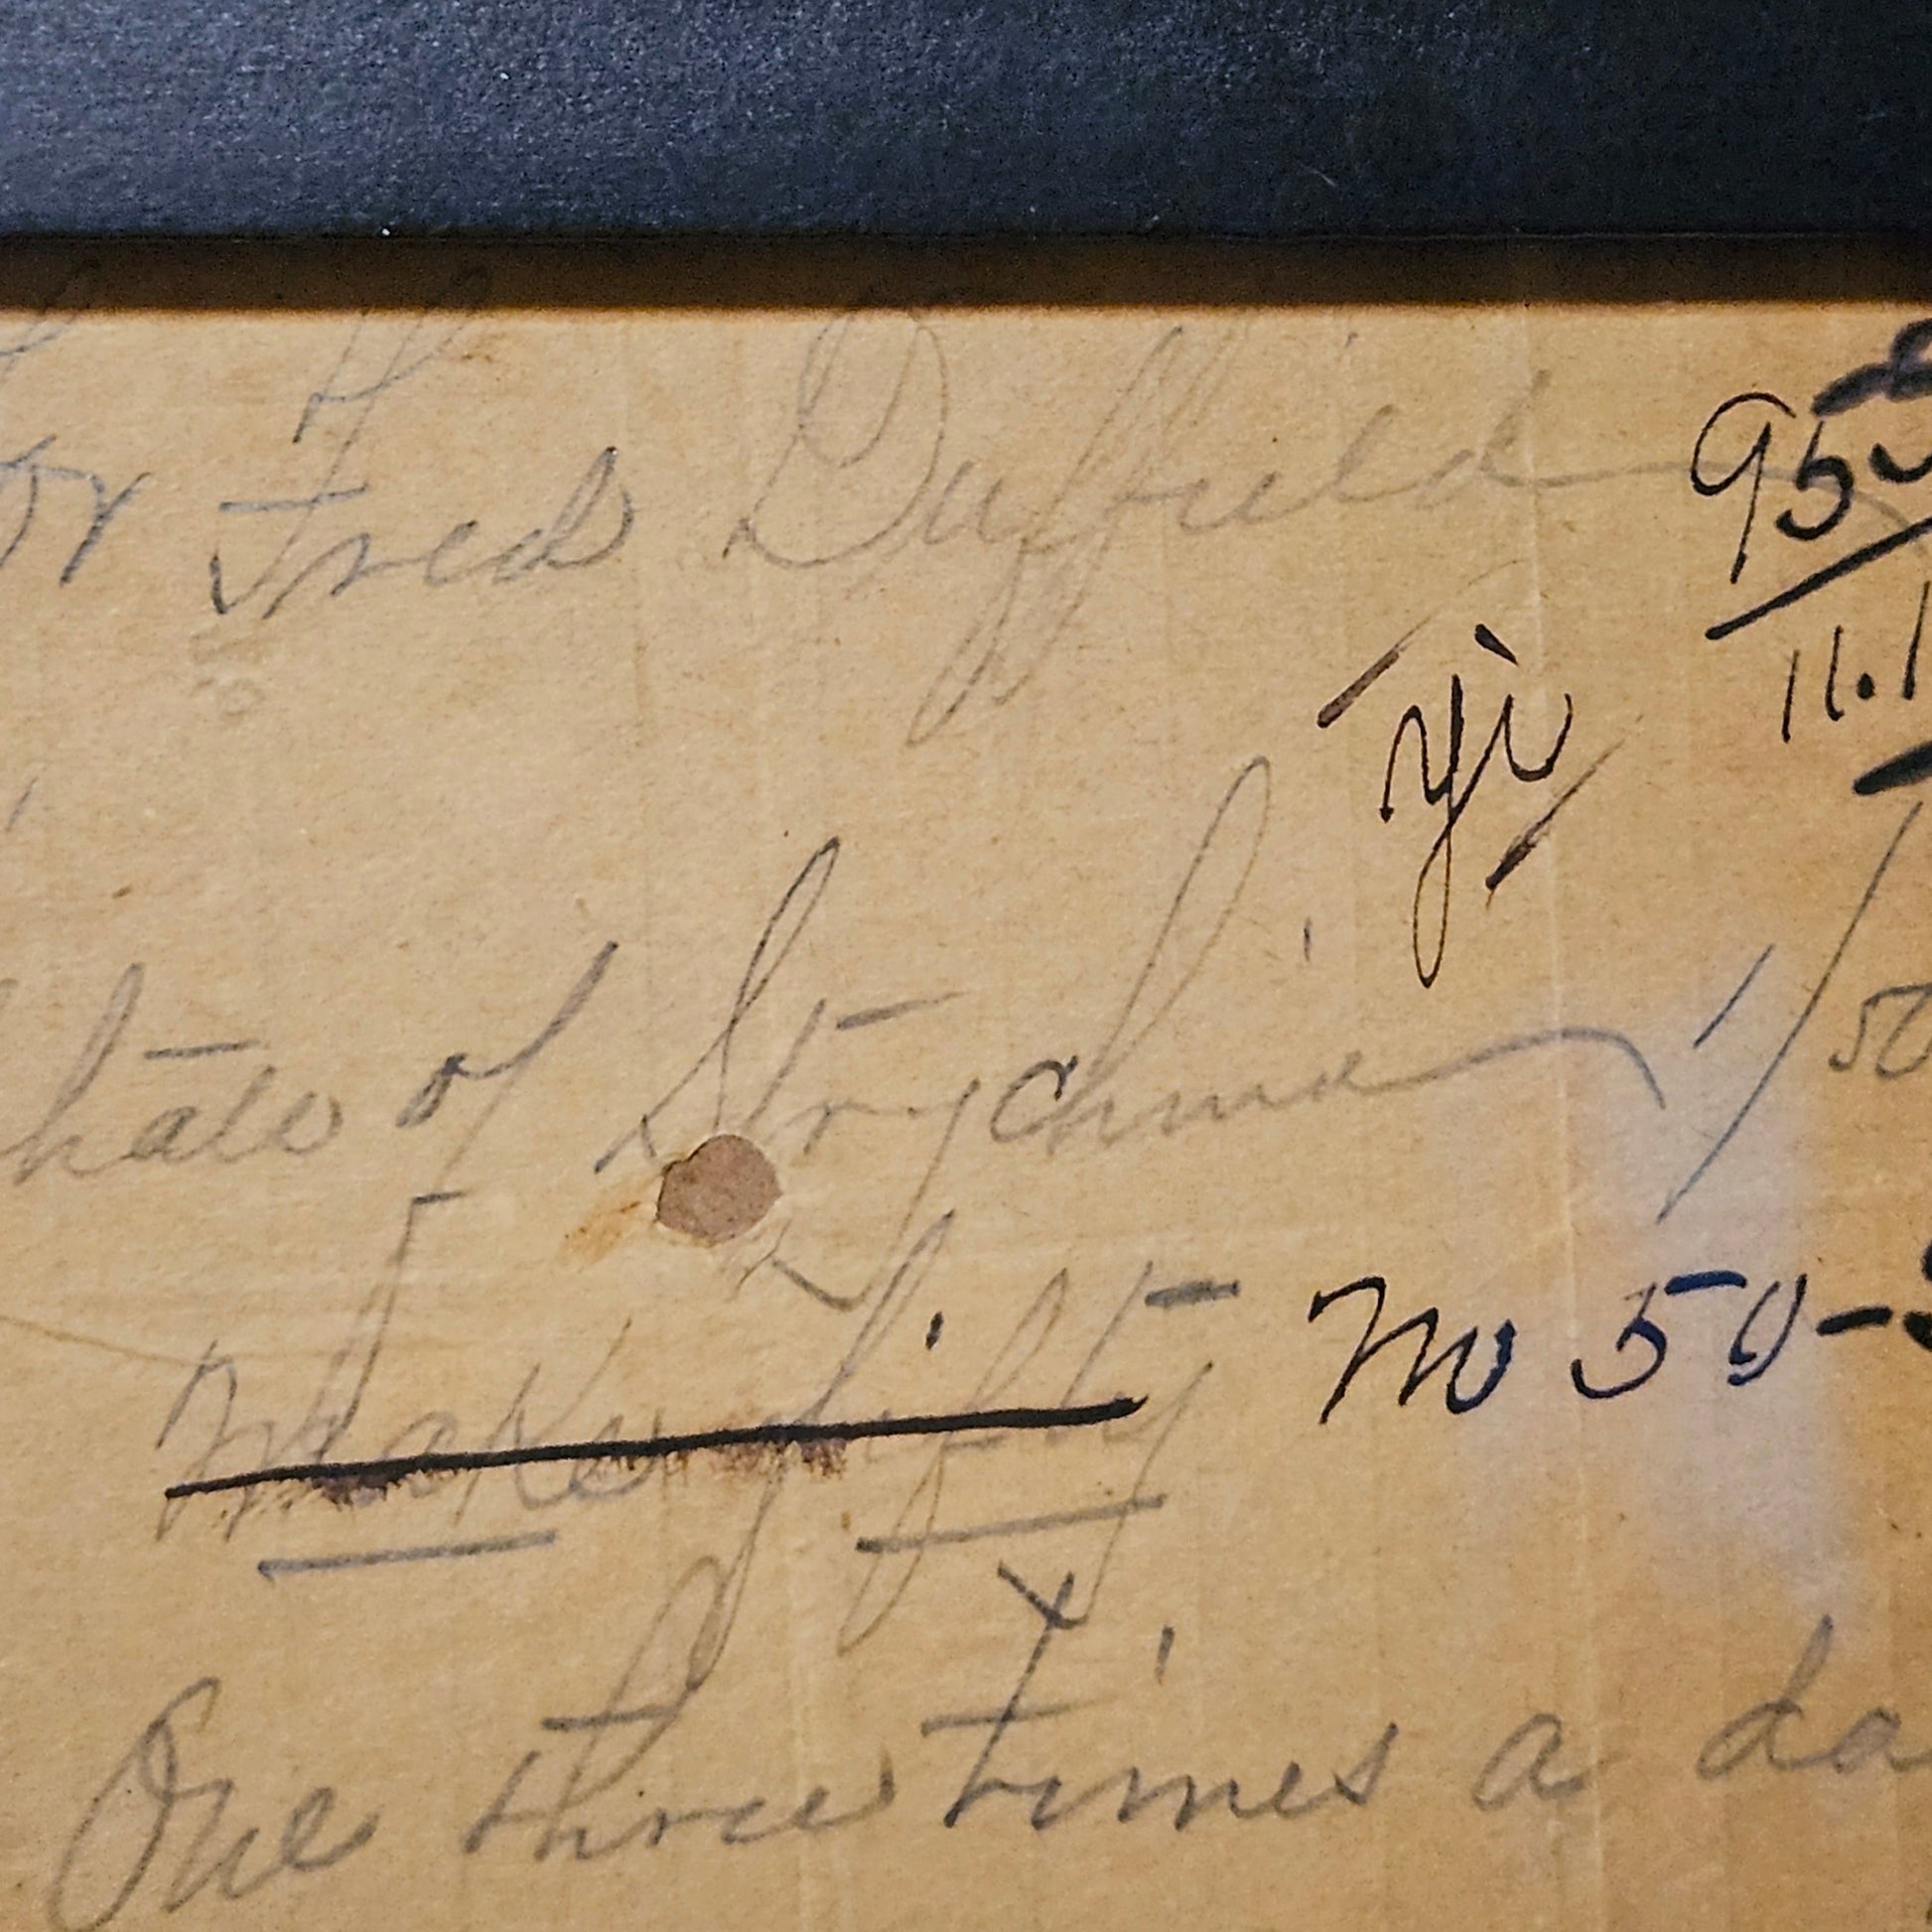 or Fred Duffield
95
11.1
yi
hate of Strychnia 1/50
Make fifty no 50-
One three times a da